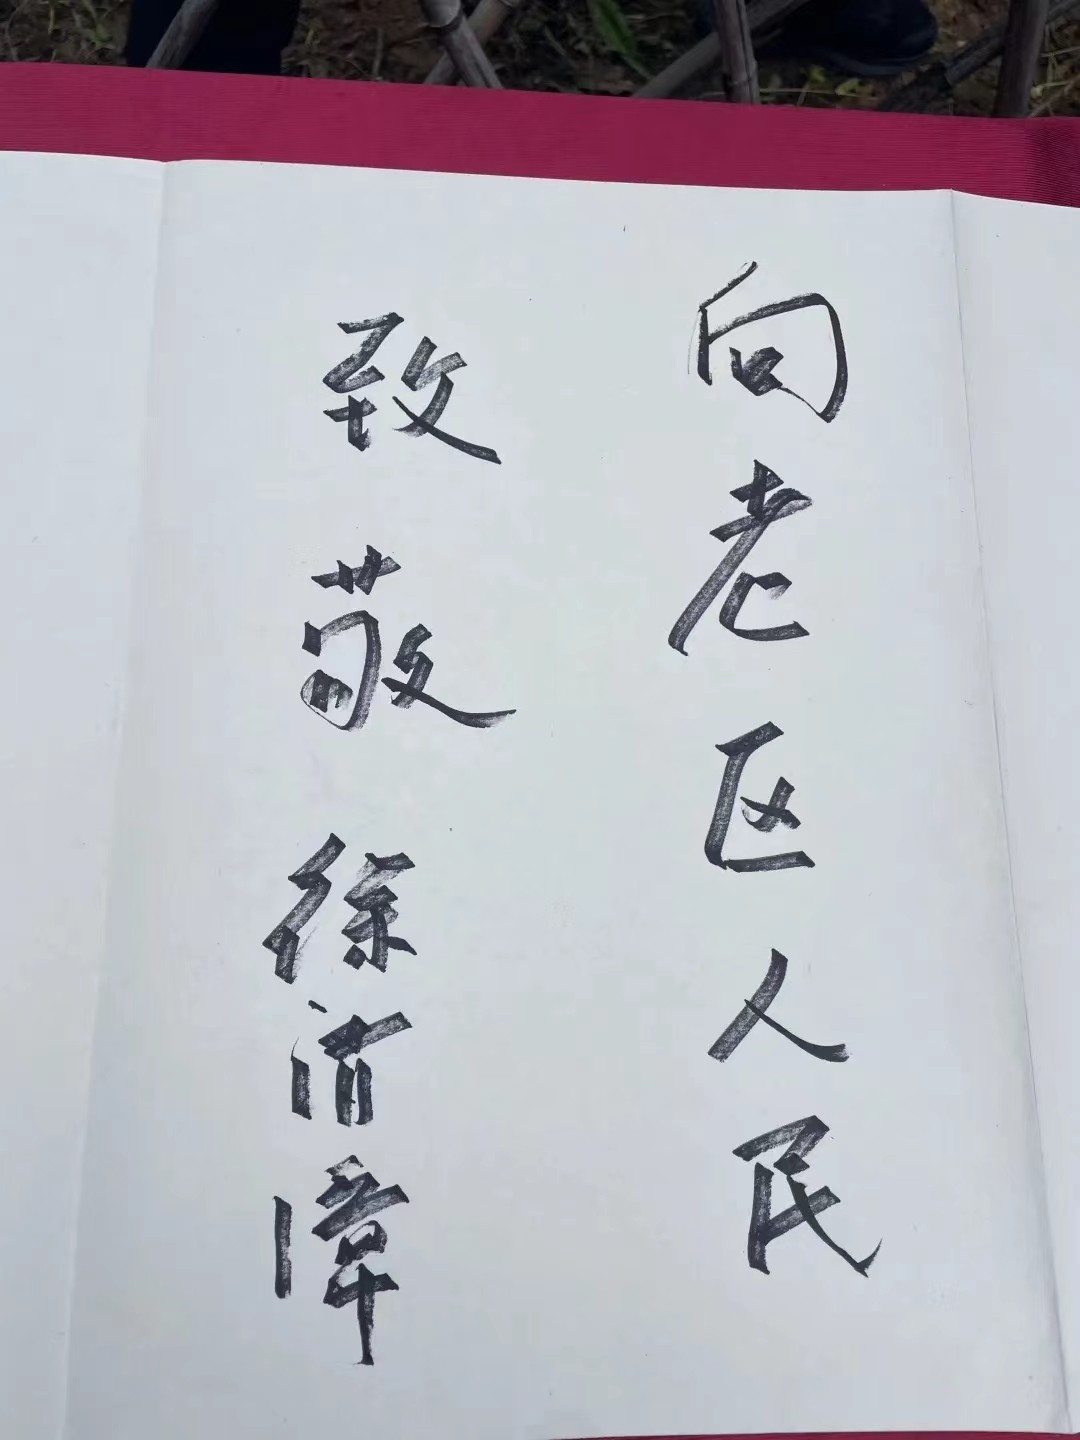 向老区人民
致敬 徐